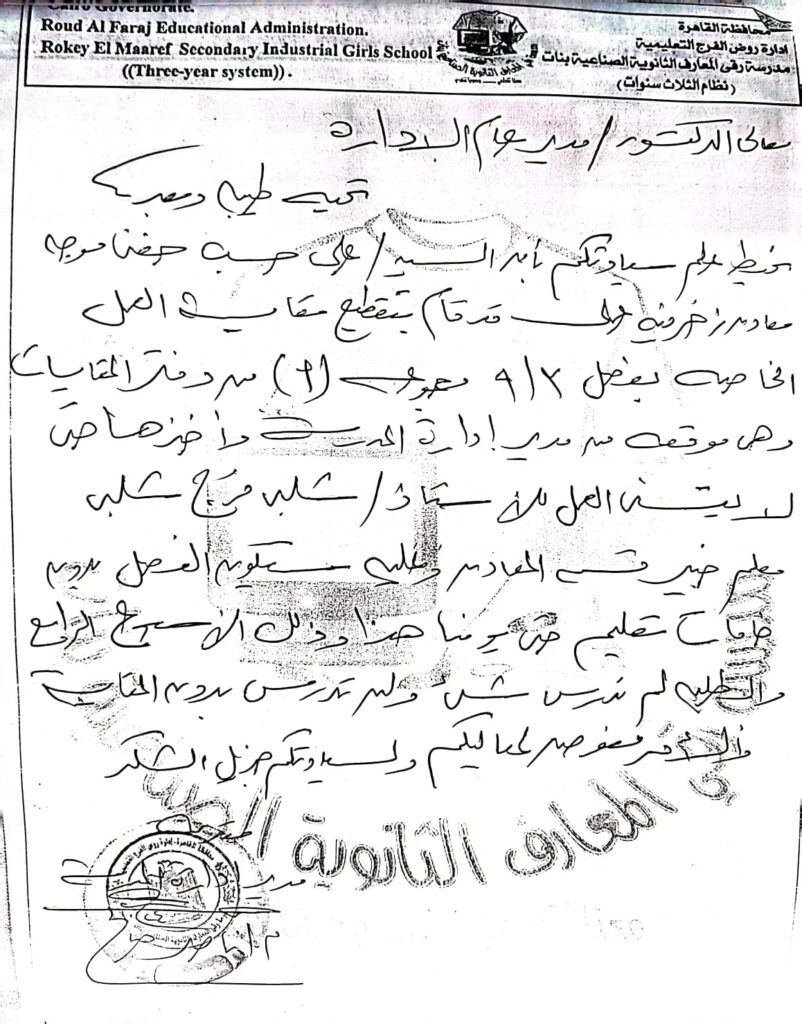 Cairo Governorate.
Roud Al Faraj Educational Administration.
Rokey El Maaref Secondary Industrial Girls School
((Three-year system)).
محافظة القاهرة
ادارة روض الفرج التعليمية
مدرسة رقى المعارف الثانوية الصناعية بنات
(نظام الثلاث سنوات)
معالى الدكتور / مدير عام الادارة
تحيه طيبه وبعد
نحيط علم سيادتكم بأن السيد / على حسب موجه
معادن زخرفية قد قام بتقطيع مقايسة العمل
الخاصه بفصل ٩/٣ مجموعة (٩) من دفتر المقايسات
وهى موقعه من مدير ادارة المدرسة وأخذها حتى
لا يتسنى العمل للأستاذ / شلبى فرج شلبى
معلم خبير قسم المعادن وعليه ستكون الفصل بدون
خامات تعليم حتى يومنا هذا وذلك الأسبوع الرابع
والطلبه لم تدرس شئ ولن تدرس بدون المقايسة
والأمر مفوض لمعاليكم ولسيادتكم جزيل الشكر
المعارف الثانوية
مدير